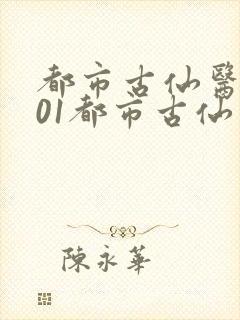 都市古仙醫
01都市古仙
陳永華